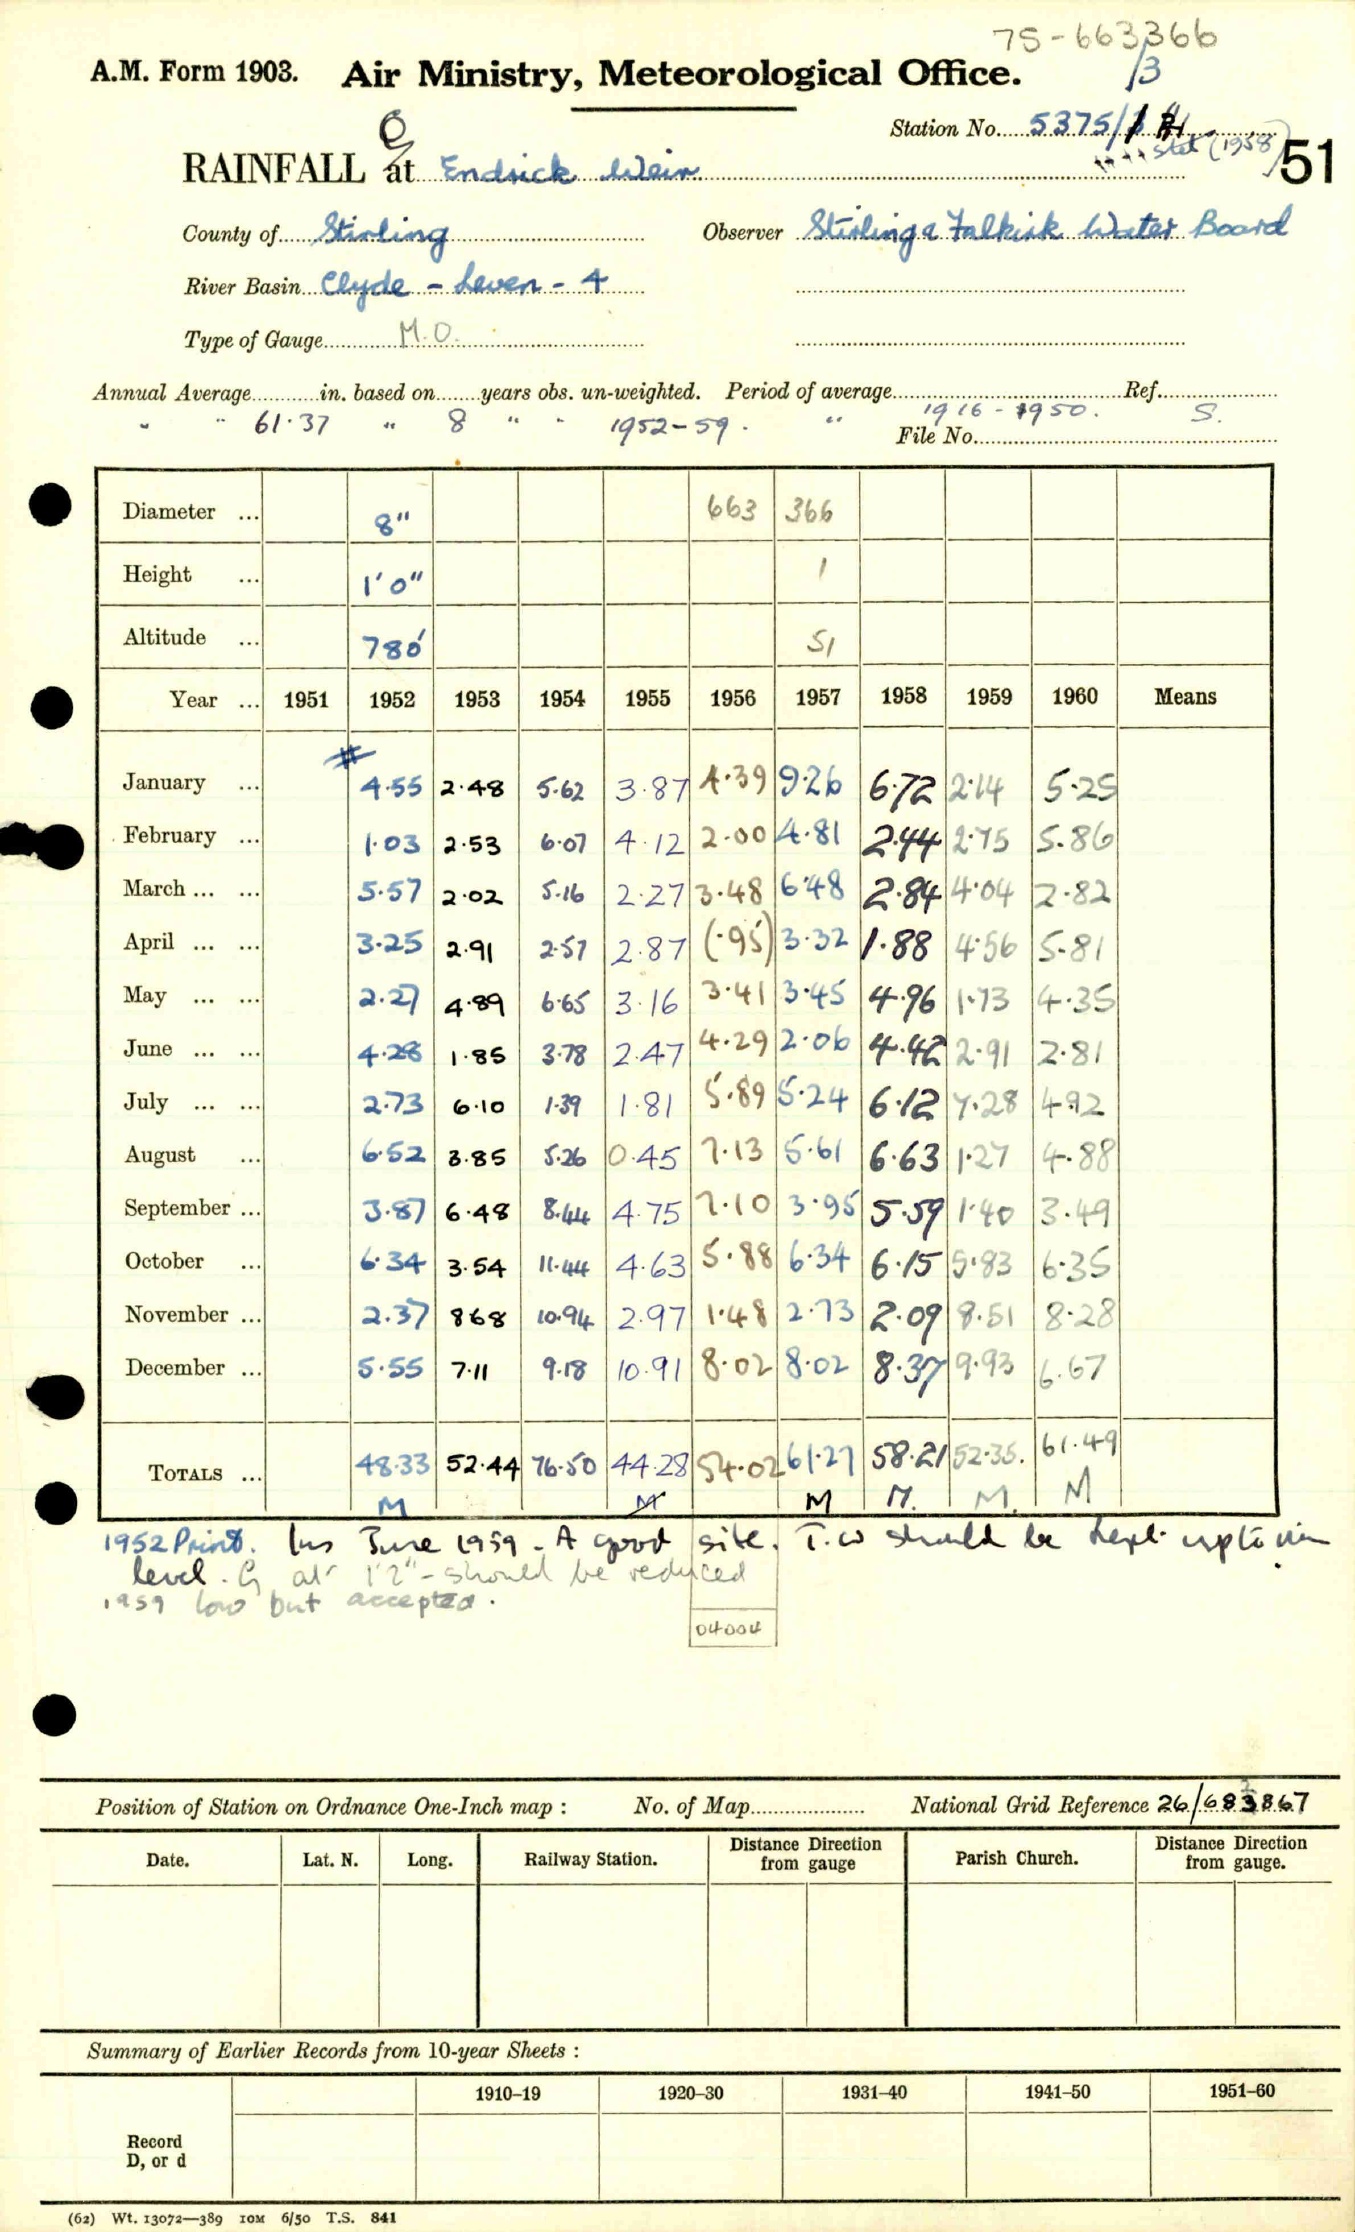 75-663366
/3
A.M. Form 1903. Air Ministry, Meteorological Office.
Station No. 5375/1
stet (1958)
51
RAINFALL at Endrick Weir
County of Stirling Observer Stirling & Falkirk Water Board
River Basin Clyde - Leven - 4
Type of Gauge M.O.
Annual Average in. based on years obs. un-weighted. Period of average Ref.
" " 61.37 " 8 " " 1952-59. " 1916-1950. S.
File No.
Diameter ... 8" 663 366
Height ... 1'0" 1
Altitude ... 780' 51
Year ... 1951 1952 1953 1954 1955 1956 1957 1958 1959 1960 Means
January ... 4.55 2.48 5.62 3.87 4.39 9.26 6.72 2.14 5.25
February ... 1.03 2.53 6.07 4.12 2.00 4.81 2.44 2.75 5.86
March ... ... 5.57 2.02 5.16 2.27 3.48 6.48 2.84 4.04 2.82
April ... ... 3.25 2.91 2.57 2.87 (.95) 3.32 1.88 4.56 5.81
May ... ... 2.27 4.89 6.65 3.16 3.41 3.45 4.96 1.73 4.35
June ... ... 4.28 1.85 3.78 2.47 4.29 2.06 4.42 2.91 2.81
July ... ... 2.73 6.10 1.39 1.81 5.89 5.24 6.12 7.28 4.92
August ... 6.52 3.85 5.26 0.45 7.13 5.61 6.63 1.27 4.88
September ... 3.87 6.48 8.44 4.75 7.10 3.95 5.59 1.40 3.49
October ... 6.34 3.54 11.44 4.63 5.88 6.34 6.15 5.83 6.35
November ... 2.37 868 10.94 2.97 1.48 2.73 2.09 8.51 8.28
December ... 5.55 7.11 9.18 10.91 8.02 8.02 8.37 9.93 6.67
TOTALS ... 48.33 52.44 76.50 44.28 54.02 61.27 58.21 52.35. 61.49
M M M M. M. M
1952 Print. Ins June 1959 - A good site. T.W should be kept up to rim
level. G at 1'2" - should be reduced
1959 low but accepted.
04004
Position of Station on Ordnance One-Inch map : No. of Map National Grid Reference 26/683867
2
Date. Lat. N. Long. Railway Station. Distance from gauge Direction Parish Church. Distance Direction from gauge.
Summary of Earlier Records from 10-year Sheets :
1910–19 1920–30 1931–40 1941–50 1951–60
Record
D, or d
(62) Wt. 13072—389 10M 6/50 T.S. 841